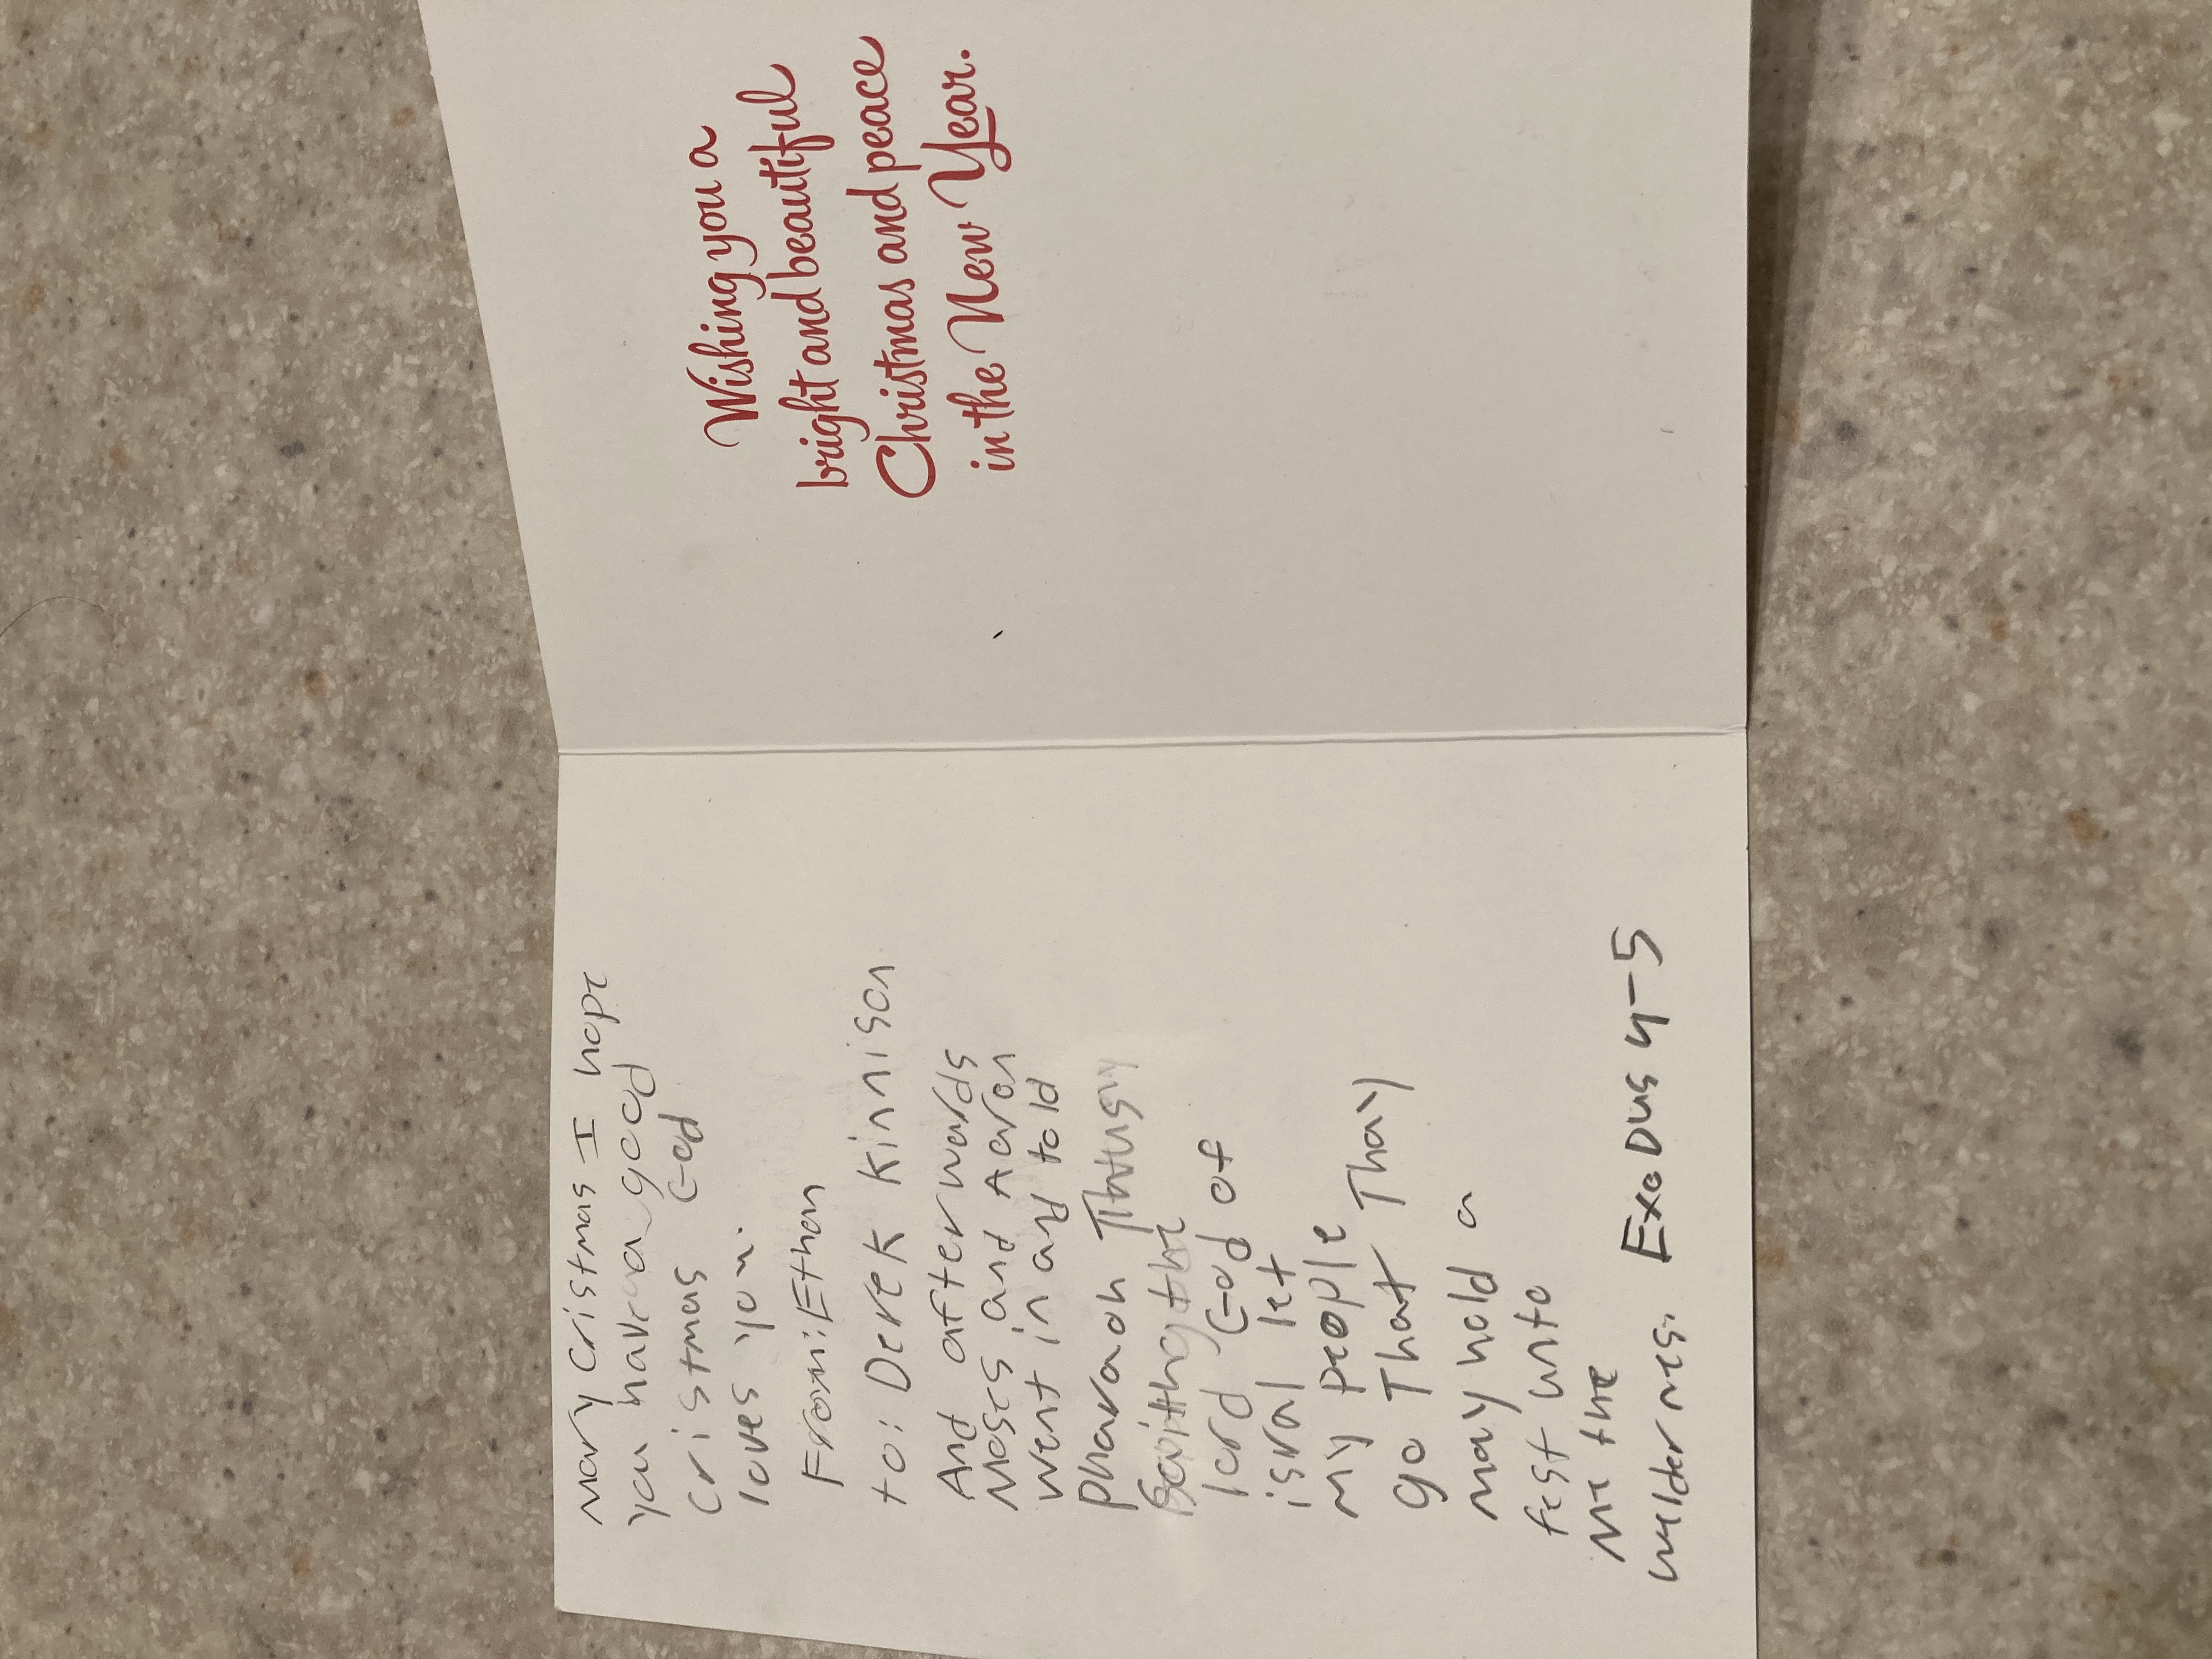 mary cristmas I hope
you have a good
cristmas God
loves you.
From: Ethan
to: Derek Kinnison
And afterwards
Moses and Aaron
went in and told
pharaoh Thus
saith the
lord God of
isral let
my people
go That Thay
may hold a
fest unto
me the
wildernes. ExoDus 4-5
Wishing you a
bright and beautiful
Christmas and peace
in the New Year.